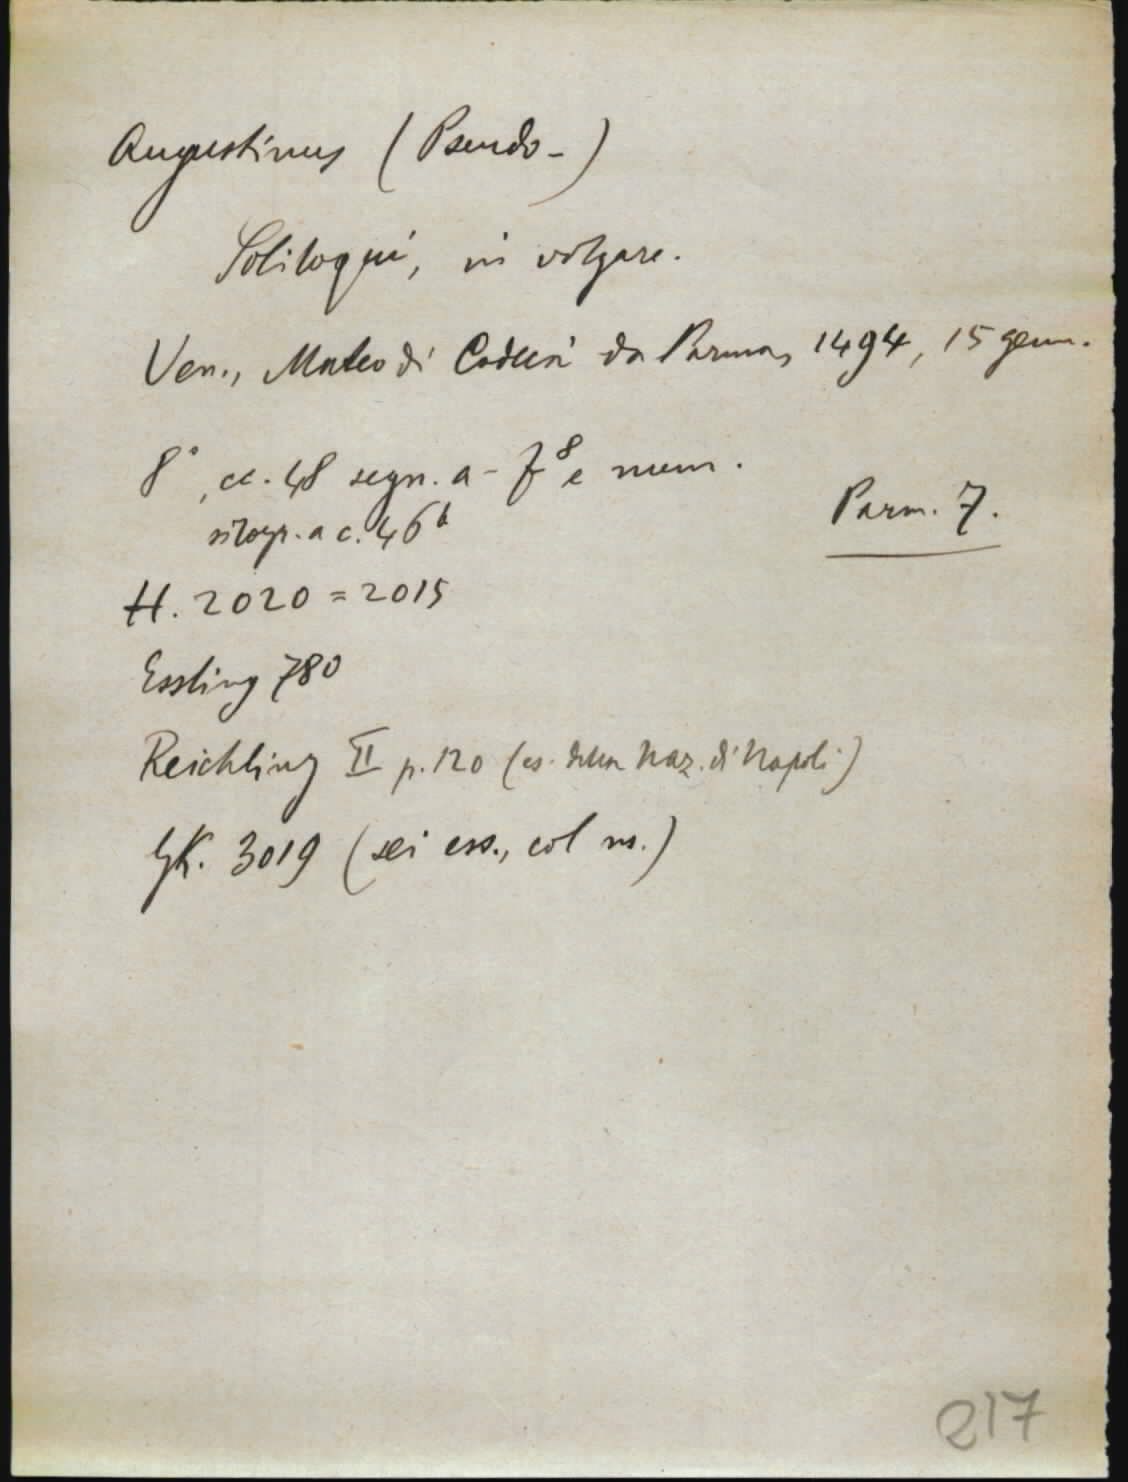 Augustinus (Pseudo-)
Soliloqui, in volgare.
Ven., Mateo di Codecà da Parma, 1494, 15 genn.
8°, cc. 48 segn. a-f⁸ e num.
silogr. a c. 46ᵇ
Parm. 7.
H. 2020 = 2015
Essling 780
Reichling II p. 120 (es. della Naz. di Napoli)
GK. 3019 (sei ess., col ns.)
217